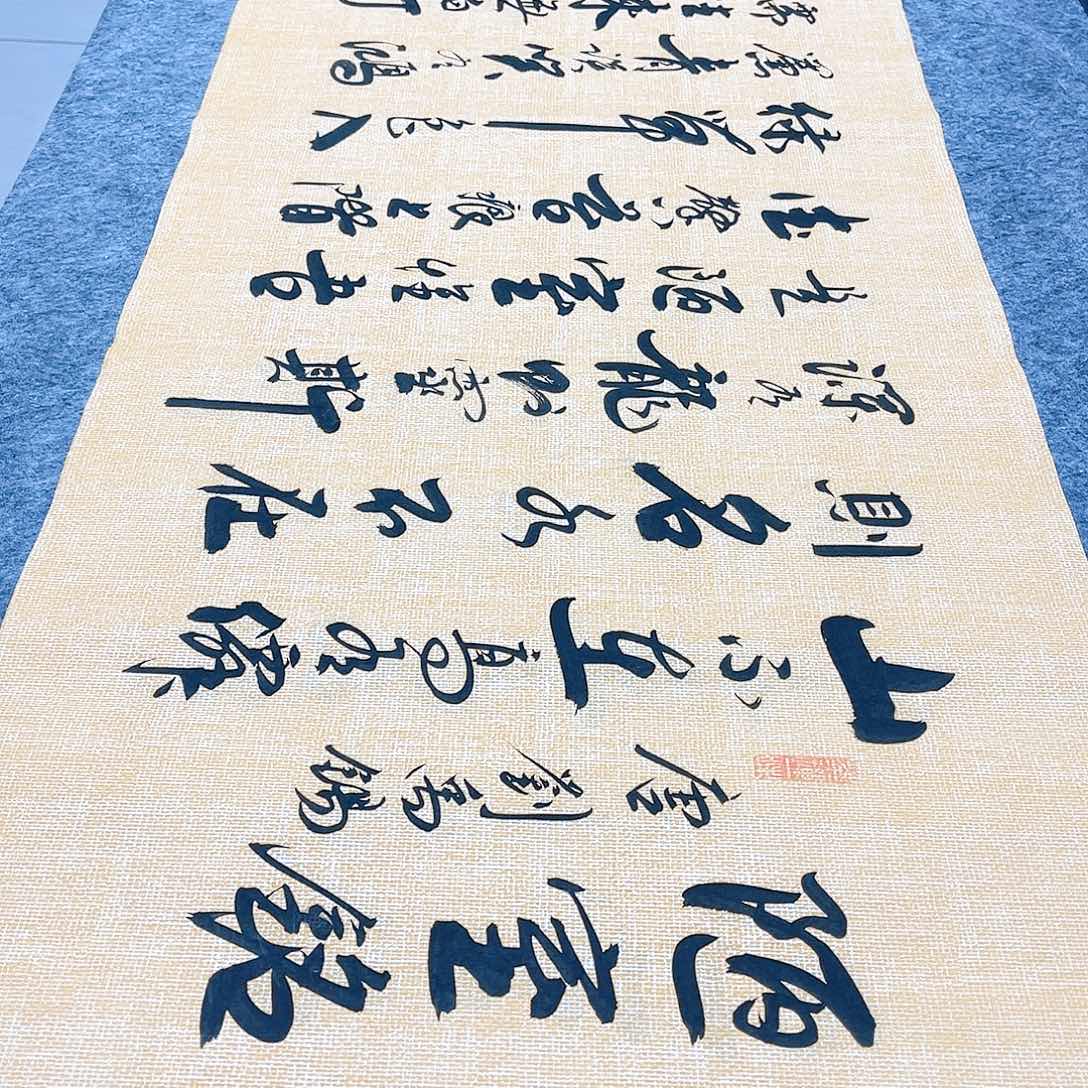 陋室銘
唐劉禹錫
山不在高有僊
則名水不在
深有龍則靈斯
是陋室惟吾
德馨苔痕上階
綠草色入
簾青談笑有鴻
儒往來無白丁